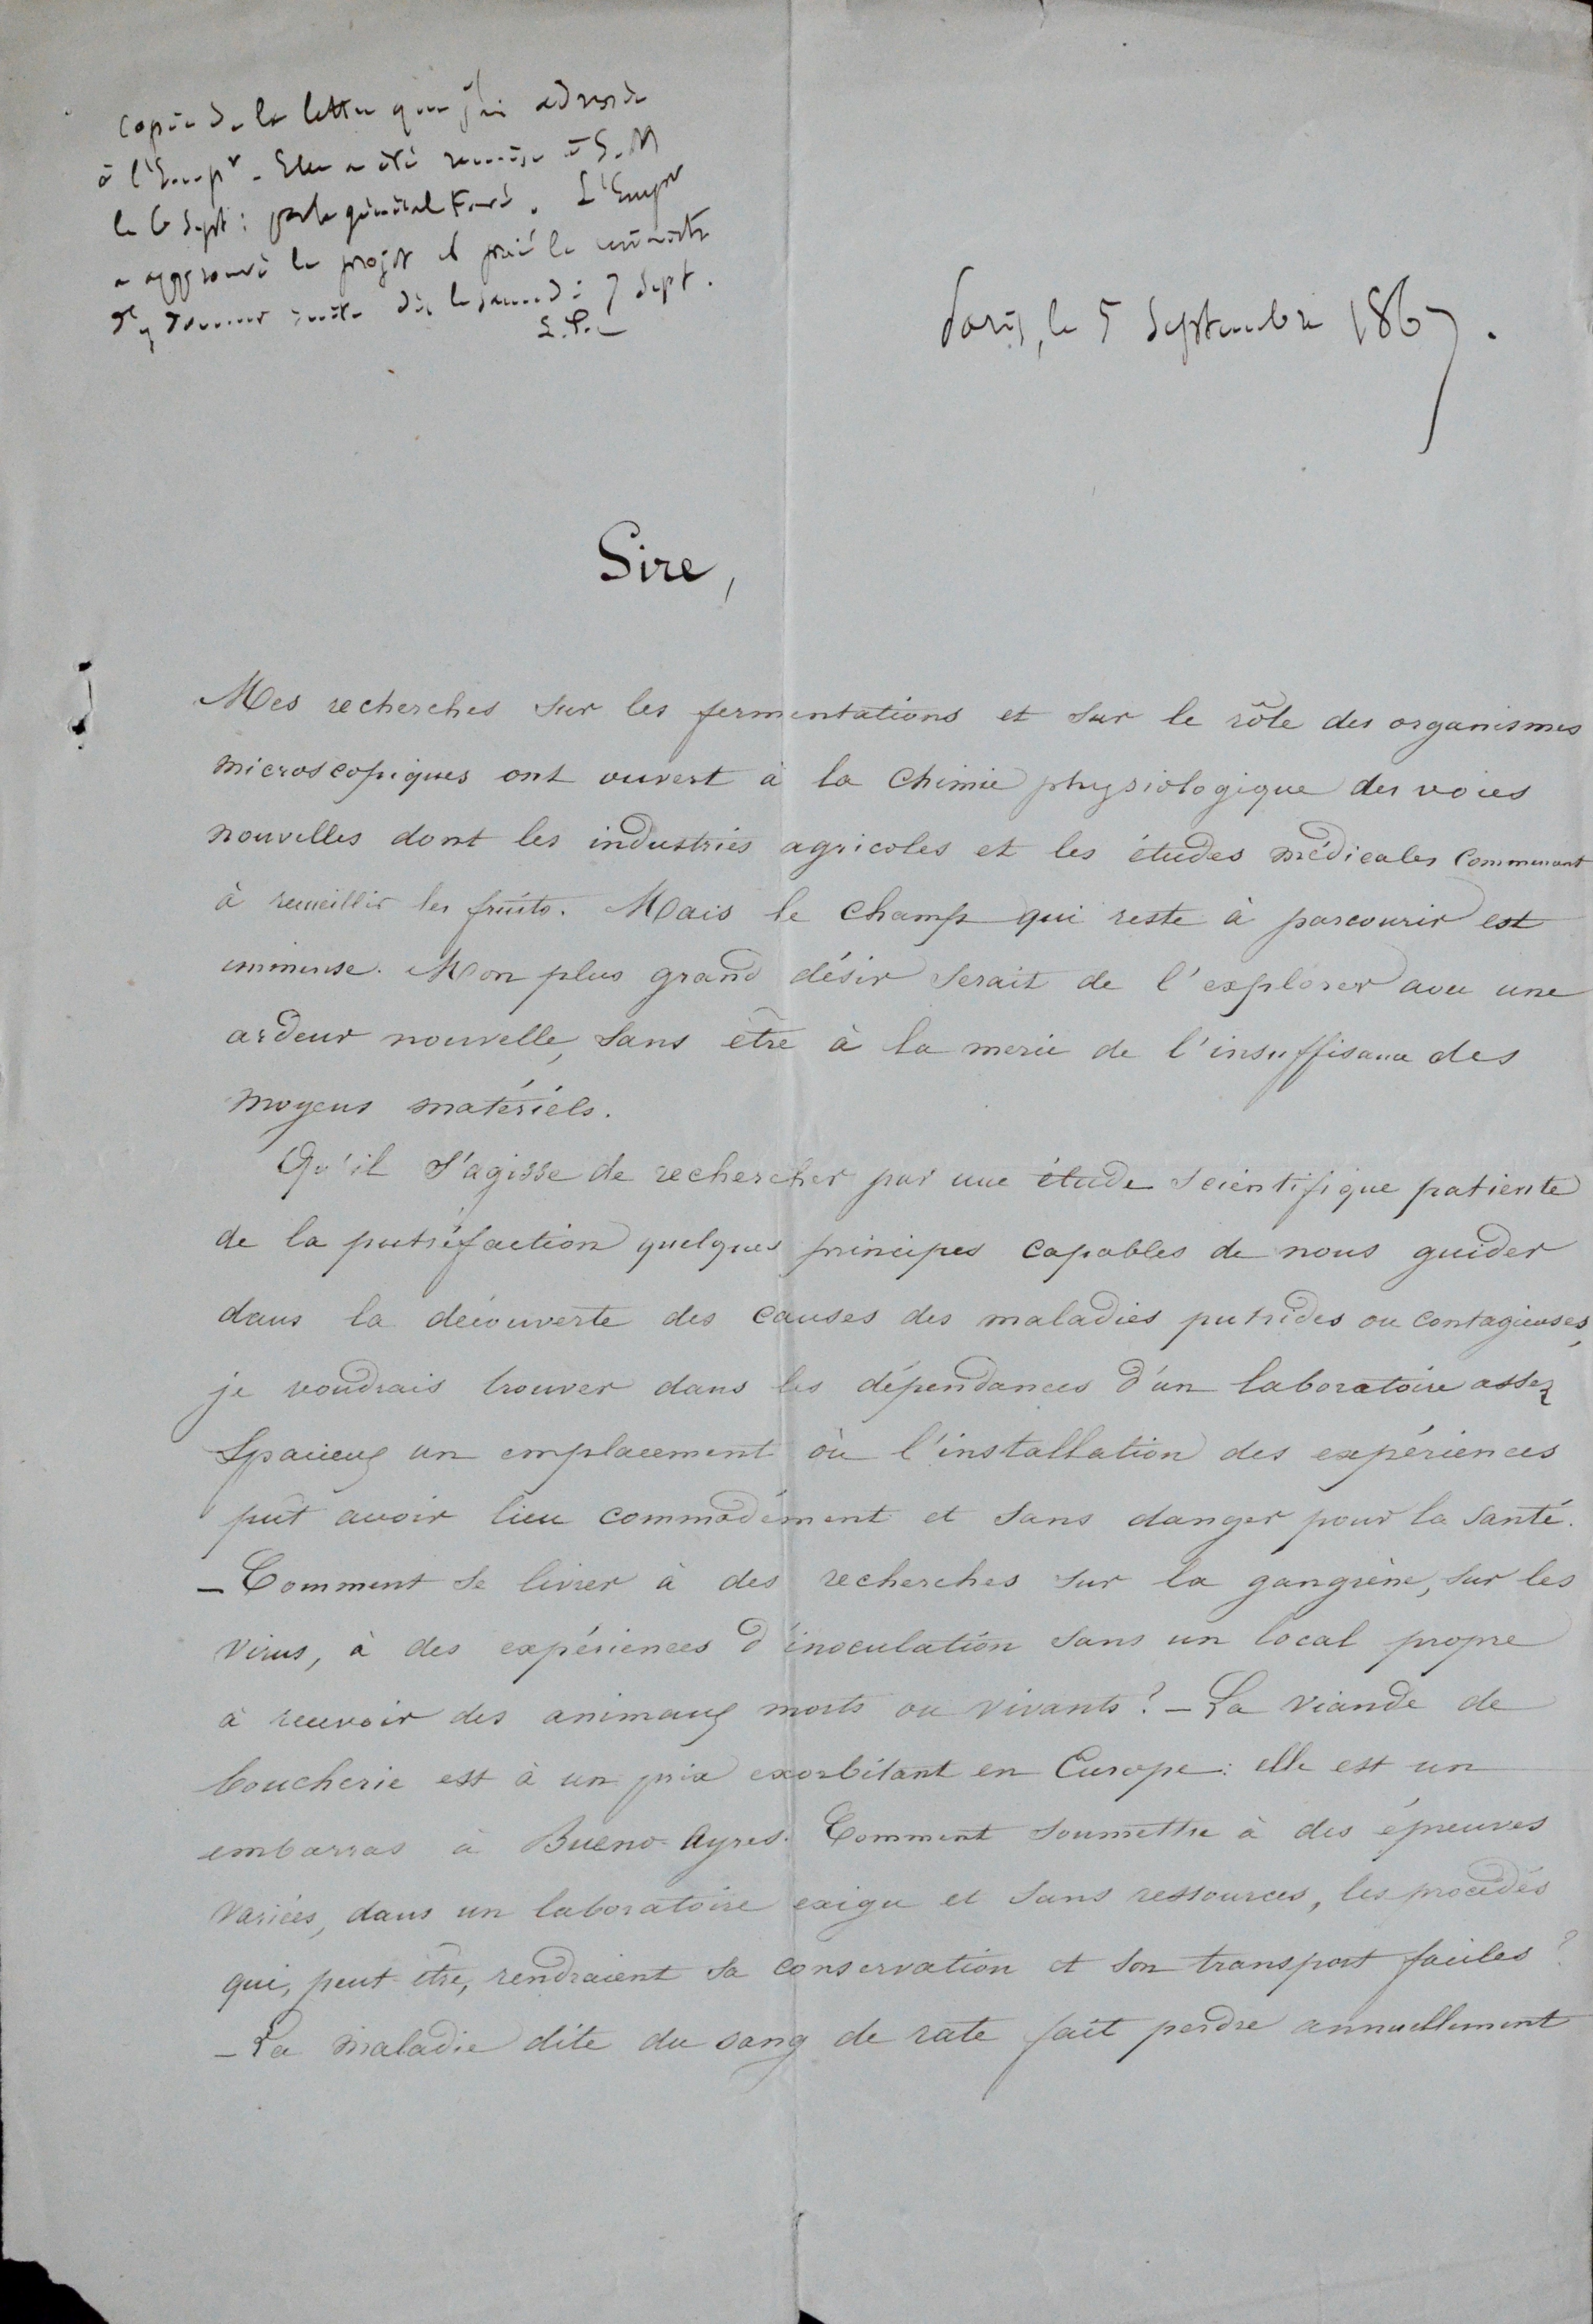 Copie de la lettre que j'ai adressée
à l'Empr. Elle a été remise à S. M
le 6 Sept: par le général Favé. L'Empr
a approuvé le projet et prié le ministre
d'y donner suite dès le samedi 7 Sept.
L. P.
Paris, le 5 Septembre 1867.
Sire,
Mes recherches sur les fermentations et sur le rôle des organismes
microscopiques ont ouvert à la Chimie physiologique des voies
nouvelles dont les industries agricoles et les études médicales commencent
à recueillir les fruits. Mais le champ qui reste à parcourir est
immense. Mon plus grand désir serait de l'explorer avec une
ardeur nouvelle, sans être à la merci de l'insuffisance des
moyens matériels.
Qu'il s'agisse de rechercher par une étude scientifique patiente
de la putréfaction quelques principes capables de nous guider
dans la découverte des causes des maladies putrides ou contagieuses,
je voudrais trouver dans les dépendances d'un laboratoire assez
spacieux un emplacement où l'installation des expériences
pût avoir lieu commodément et sans danger pour la santé.
_ Comment se livrer à des recherches sur la gangrène, sur les
virus, à des expériences d'inoculation sans un local propre
à recevoir des animaux morts ou vivants? _ La viande de
boucherie est à un prix exorbitant en Europe: elle est un
embarras à Bueno-Ayres. Comment soumettre à des épreuves
variées, dans un laboratoire exigu et sans ressources, les procédés
qui, peut-être, rendraient sa conservation et son transport faciles?
_ La maladie dite du sang de rate fait perdre annuellement